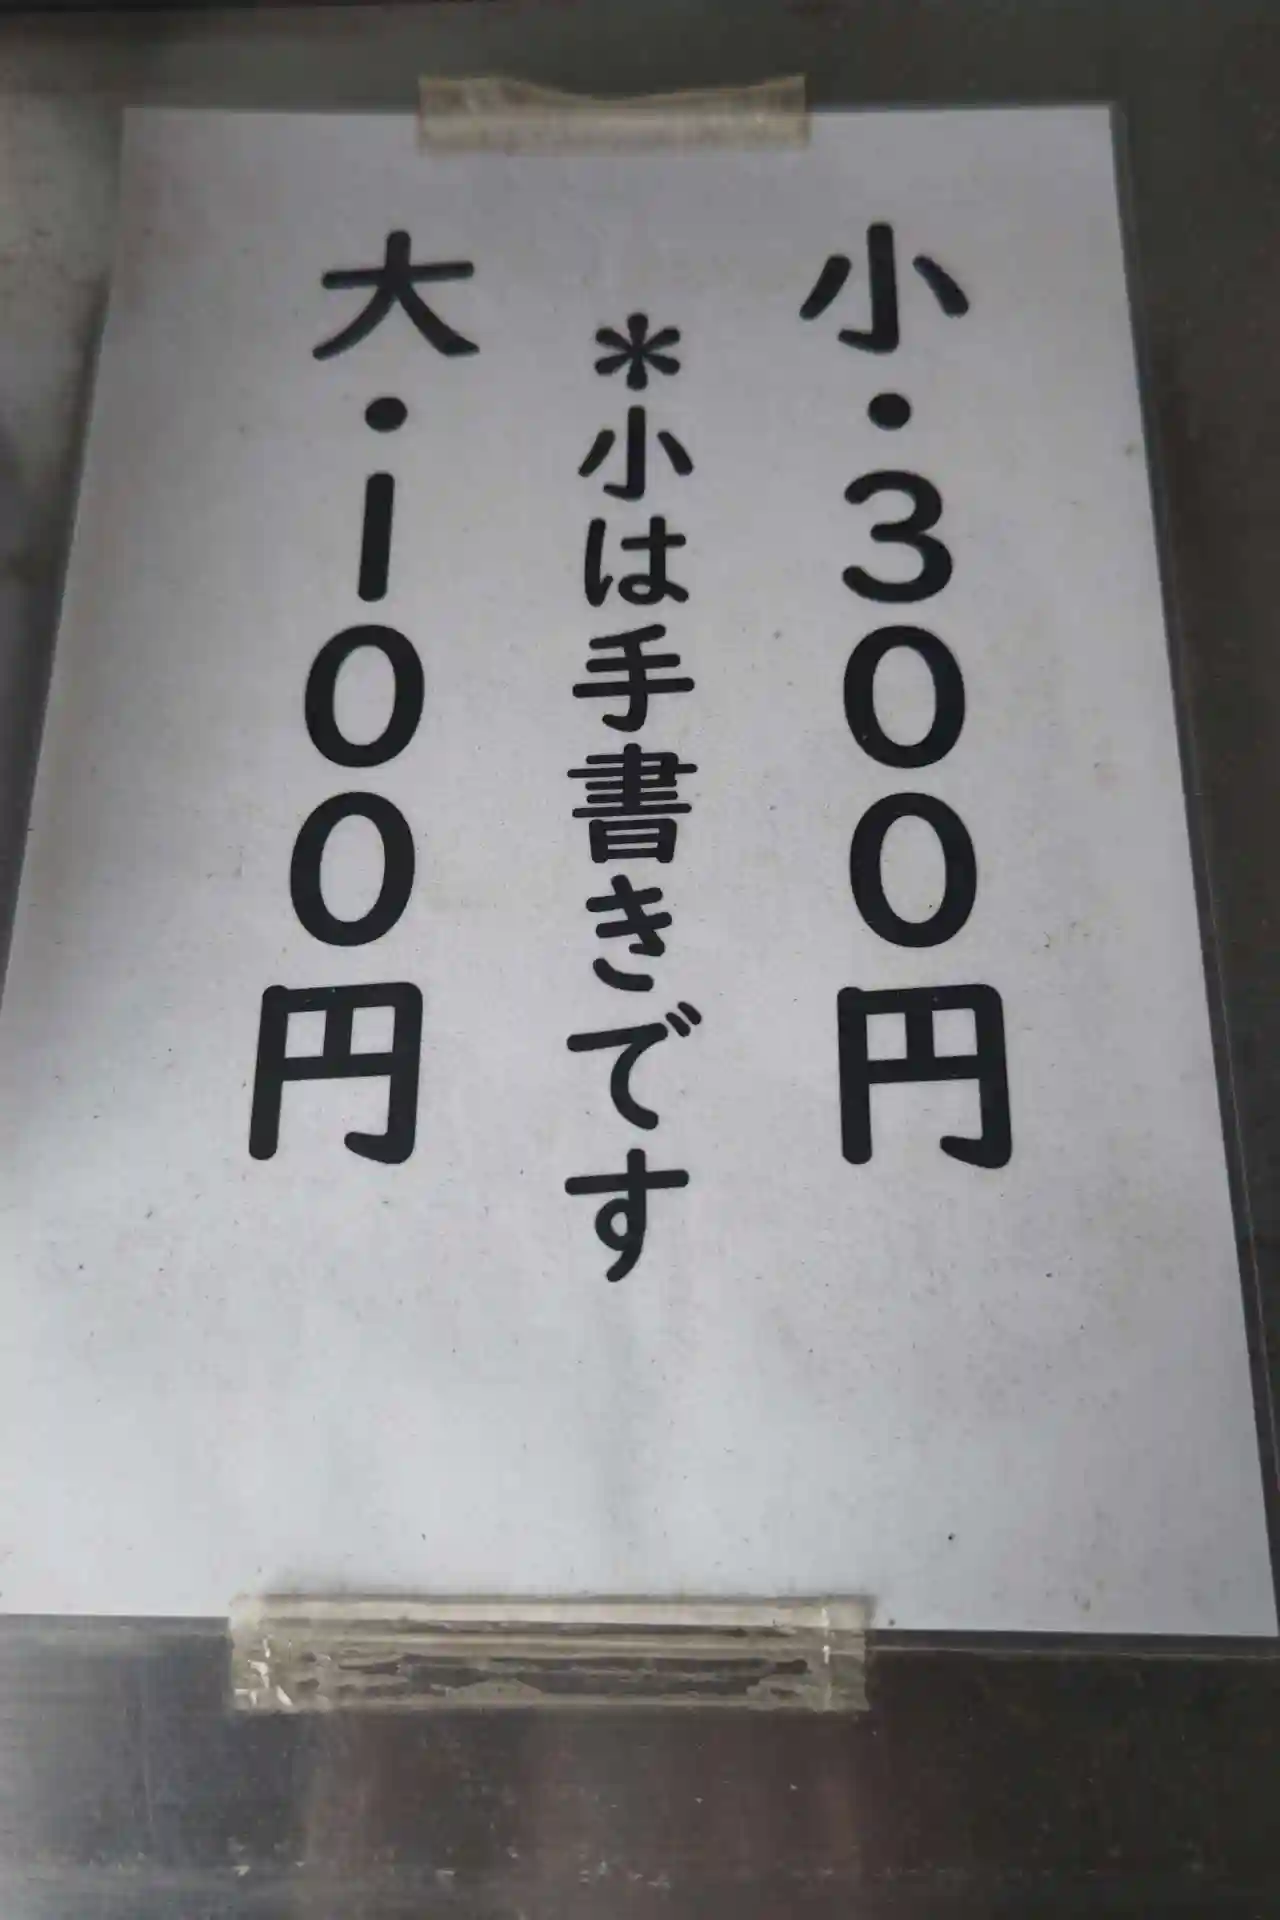 小・300円
*小は手書きです
大・100円